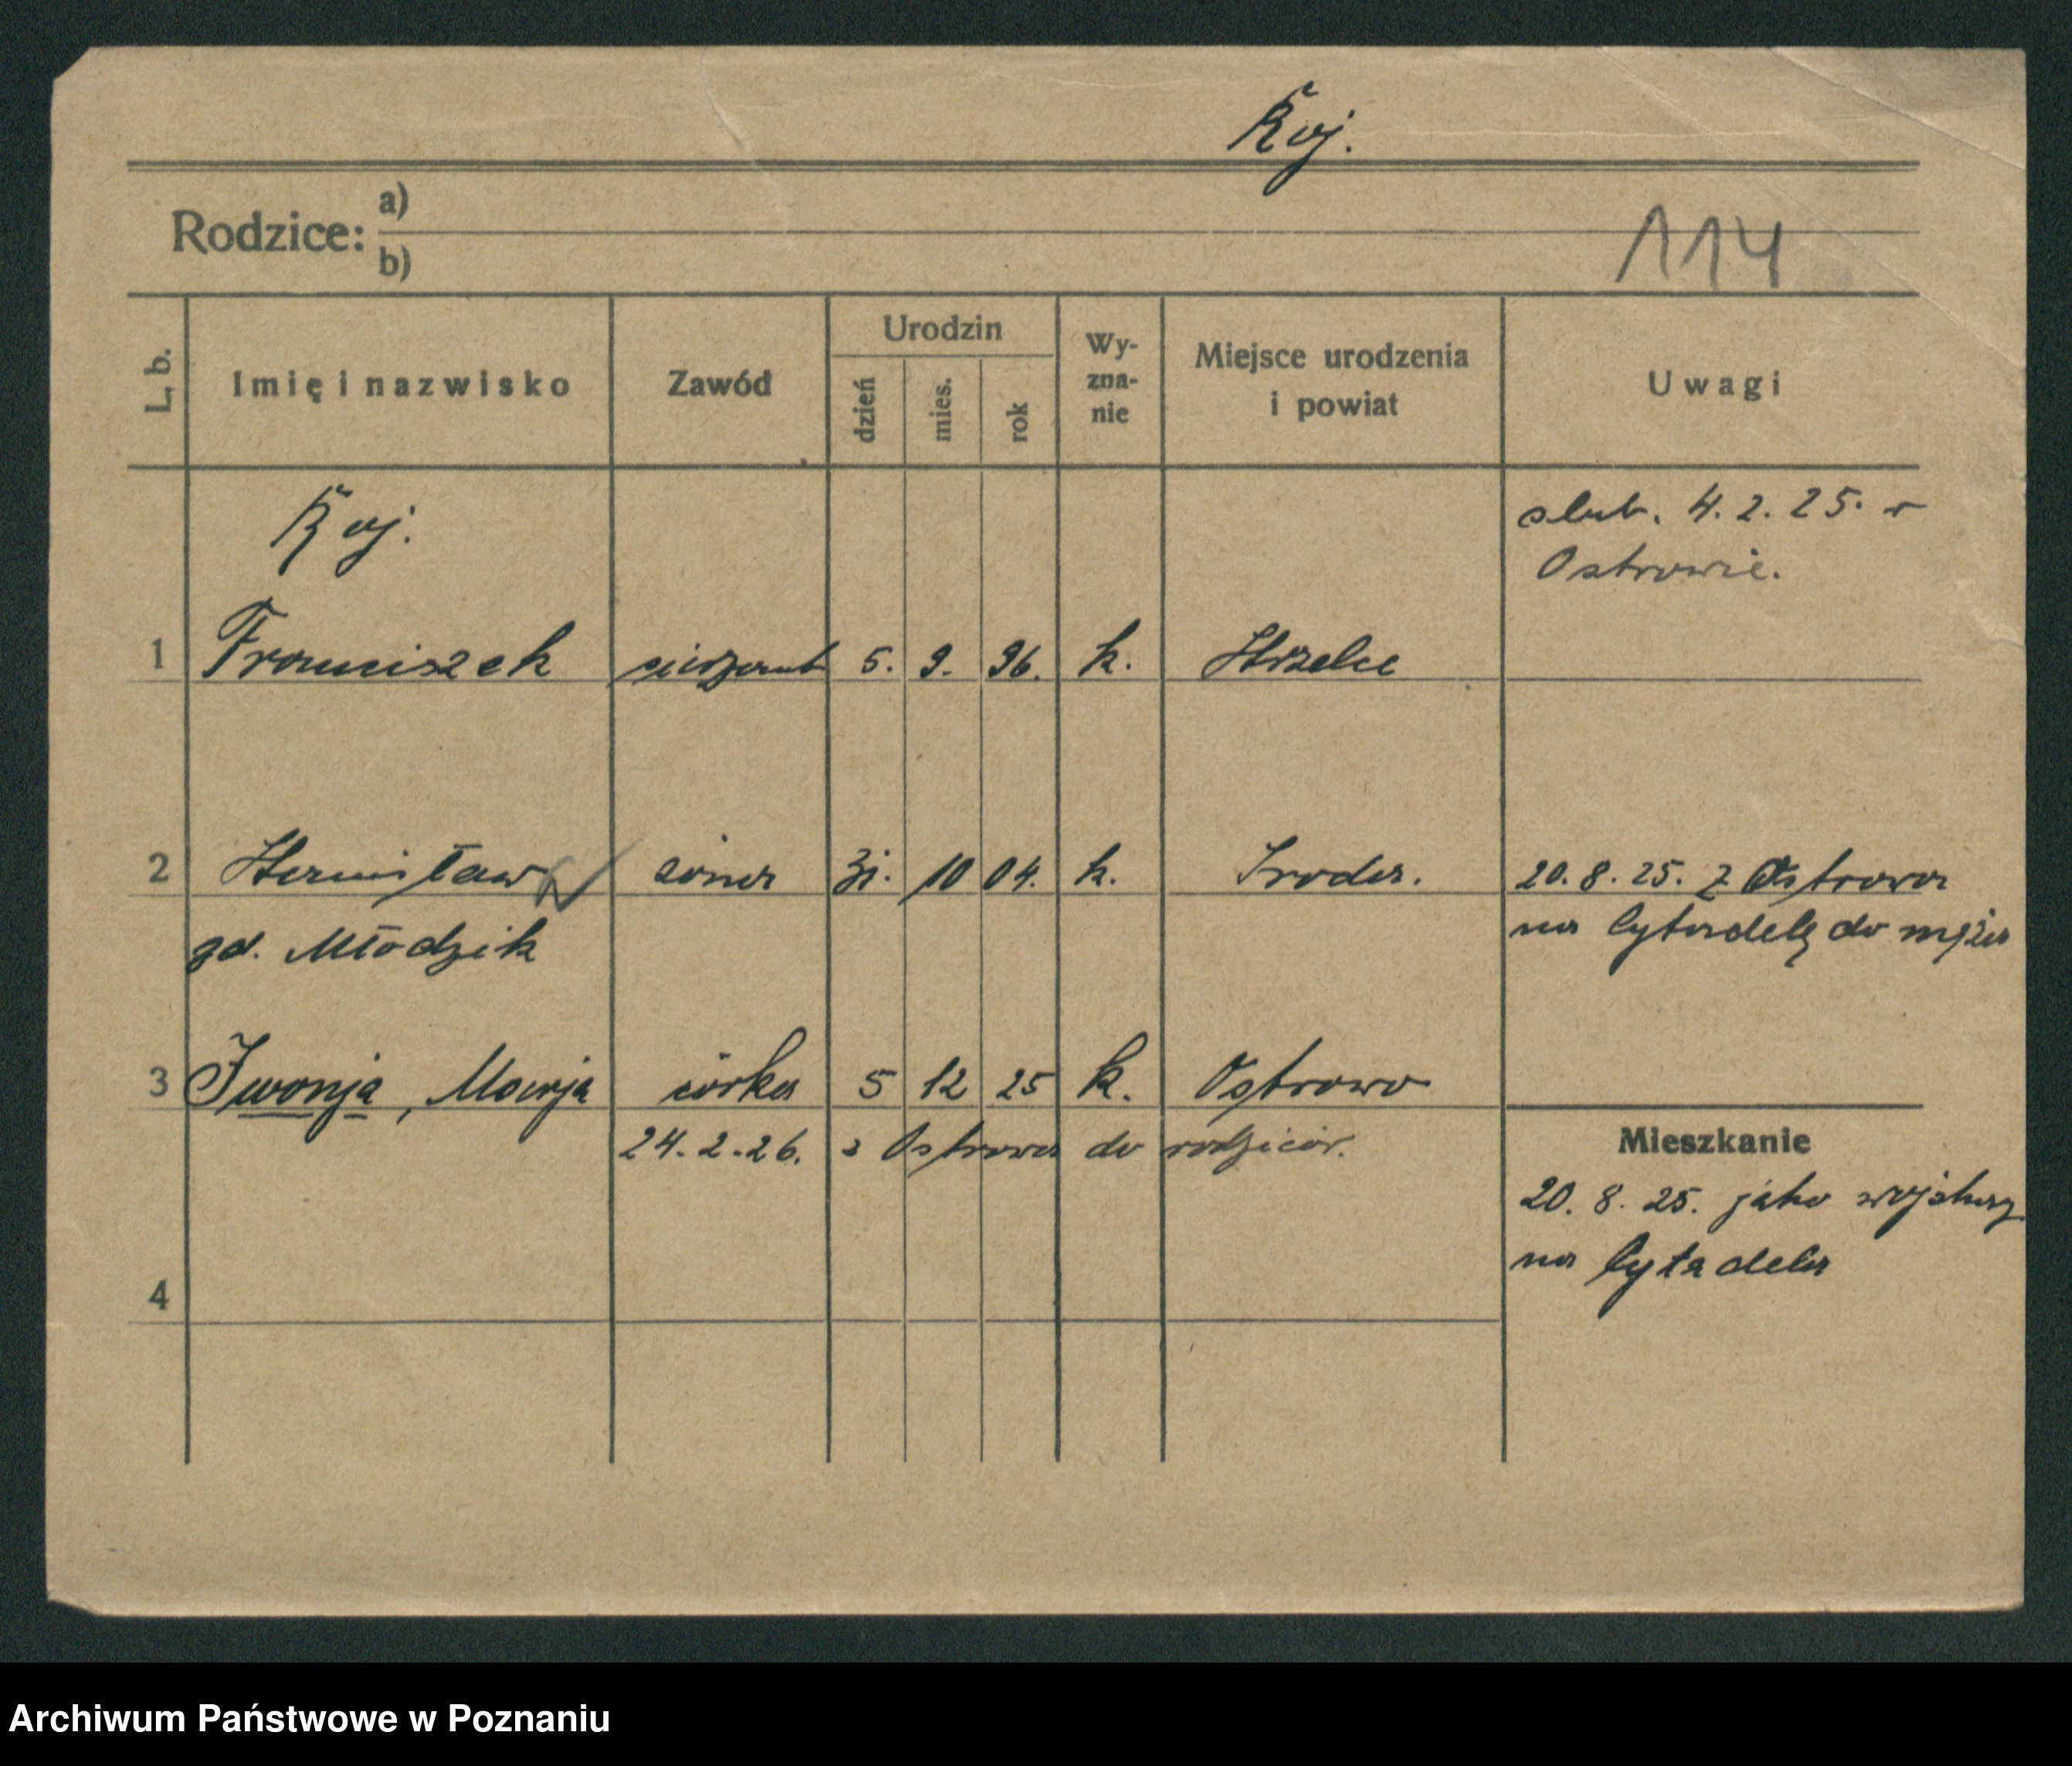 Koj.
Rodzice: a)
b)
114
L. b.
Imię i nazwisko
Zawód
Urodzin
dzień
mies.
rok
Wy-
zna-
nie
Miejsce urodzenia
i powiat
Uwagi
Koj.
ślub. 4. 2. 25. w
Ostrowie.
1 Franciszek sierżant 5. 9. 96. k. Strzelce
2 31. 10 04. k. Środa. 20. 8. 25. z Ostrowa
gd. Młodzik na Cytadelę do męża
3 Iwonja, Marja córka 5 12 25 k. Ostrowo
24. 2. 26. z Ostrowa do rodziców.
Mieszkanie
20. 8. 25. jako wojskowy
na Cytadela
4
Archiwum Państwowe w Poznaniu